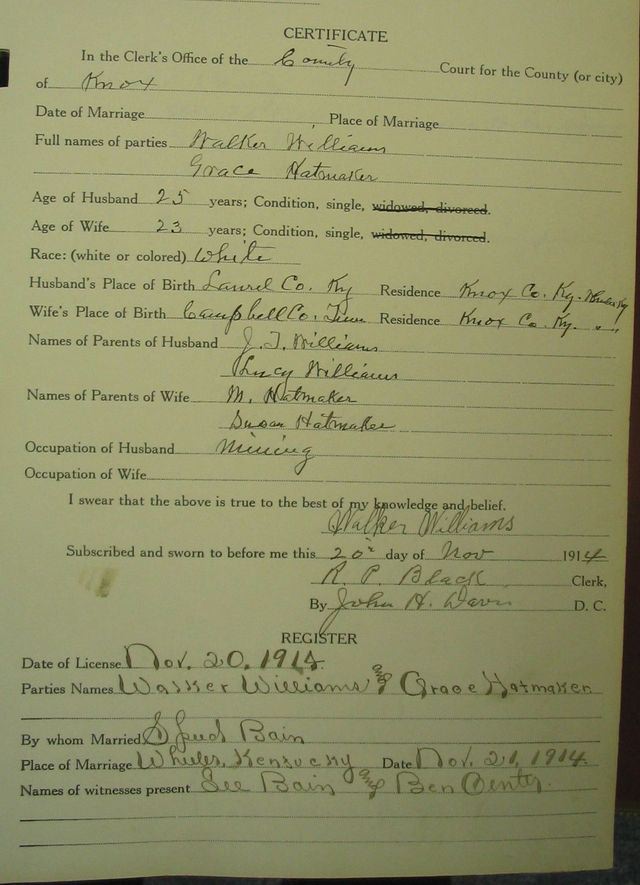 CERTIFICATE
In the Clerk's Office of the County Court for the County (or city)
of Knox
Date of Marriage Place of Marriage
Full names of parties Walker Williams
Grace Hatmaker
Age of Husband 25 years; Condition, single, widowed, divorced.
Age of Wife 23 years; Condition, single, widowed, divorced.
Race: (white or colored) White
Husband's Place of Birth Laurel Co. Ky Residence Knox Co. Ky.
Wife's Place of Birth Campbell Co. Tenn Residence Knox Co. Ky. " "
Names of Parents of Husband J. T. Williams
Lucy Williams
Names of Parents of Wife M. Hatmaker
Susan Hatmaker
Occupation of Husband Mining
Occupation of Wife
I swear that the above is true to the best of my knowledge and belief.
Walker Williams
Subscribed and sworn to before me this 20 day of Nov 1914
R. P. Black Clerk,
By John H. Davis D. C.
REGISTER
Date of License Nov. 20, 1914.
Parties Names Walker Williams and Grace Hatmaker
By whom Married Bain
Place of Marriage Wheeler, Kentucky Date Nov. 21, 1914.
Names of witnesses present Lee Bain and Ben Center.